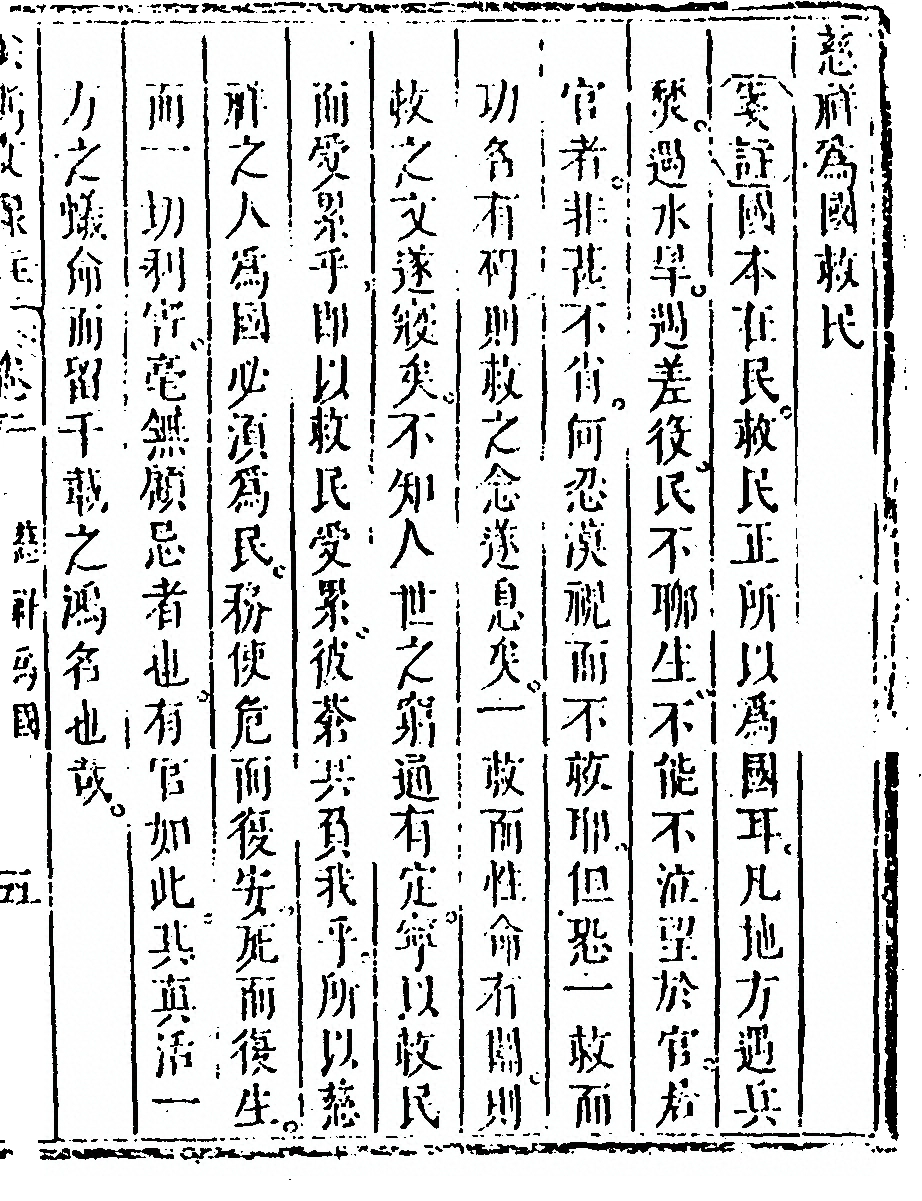 慈祥爲國救民
箋註國本在民救民正所以爲國耳凡地方遇兵
燹遇水旱遇差役民不聊生不能不泣望於官若
官者非甚不肖何忍漠視而不救耶但恐一救而
功名有碍則救之念遂息矣一救而性命有關則
救之文遂寢矣不知人世之窮通有定寧以救民
而受累乎卽以救民受累彼蒼其負我乎所以慈
祥之人爲國必須爲民務使危而復安死而復生
而一切利害毫無顧忌者也有官如此其真活一
方之蟻命而留千載之鴻名也哉
慈祥爲國